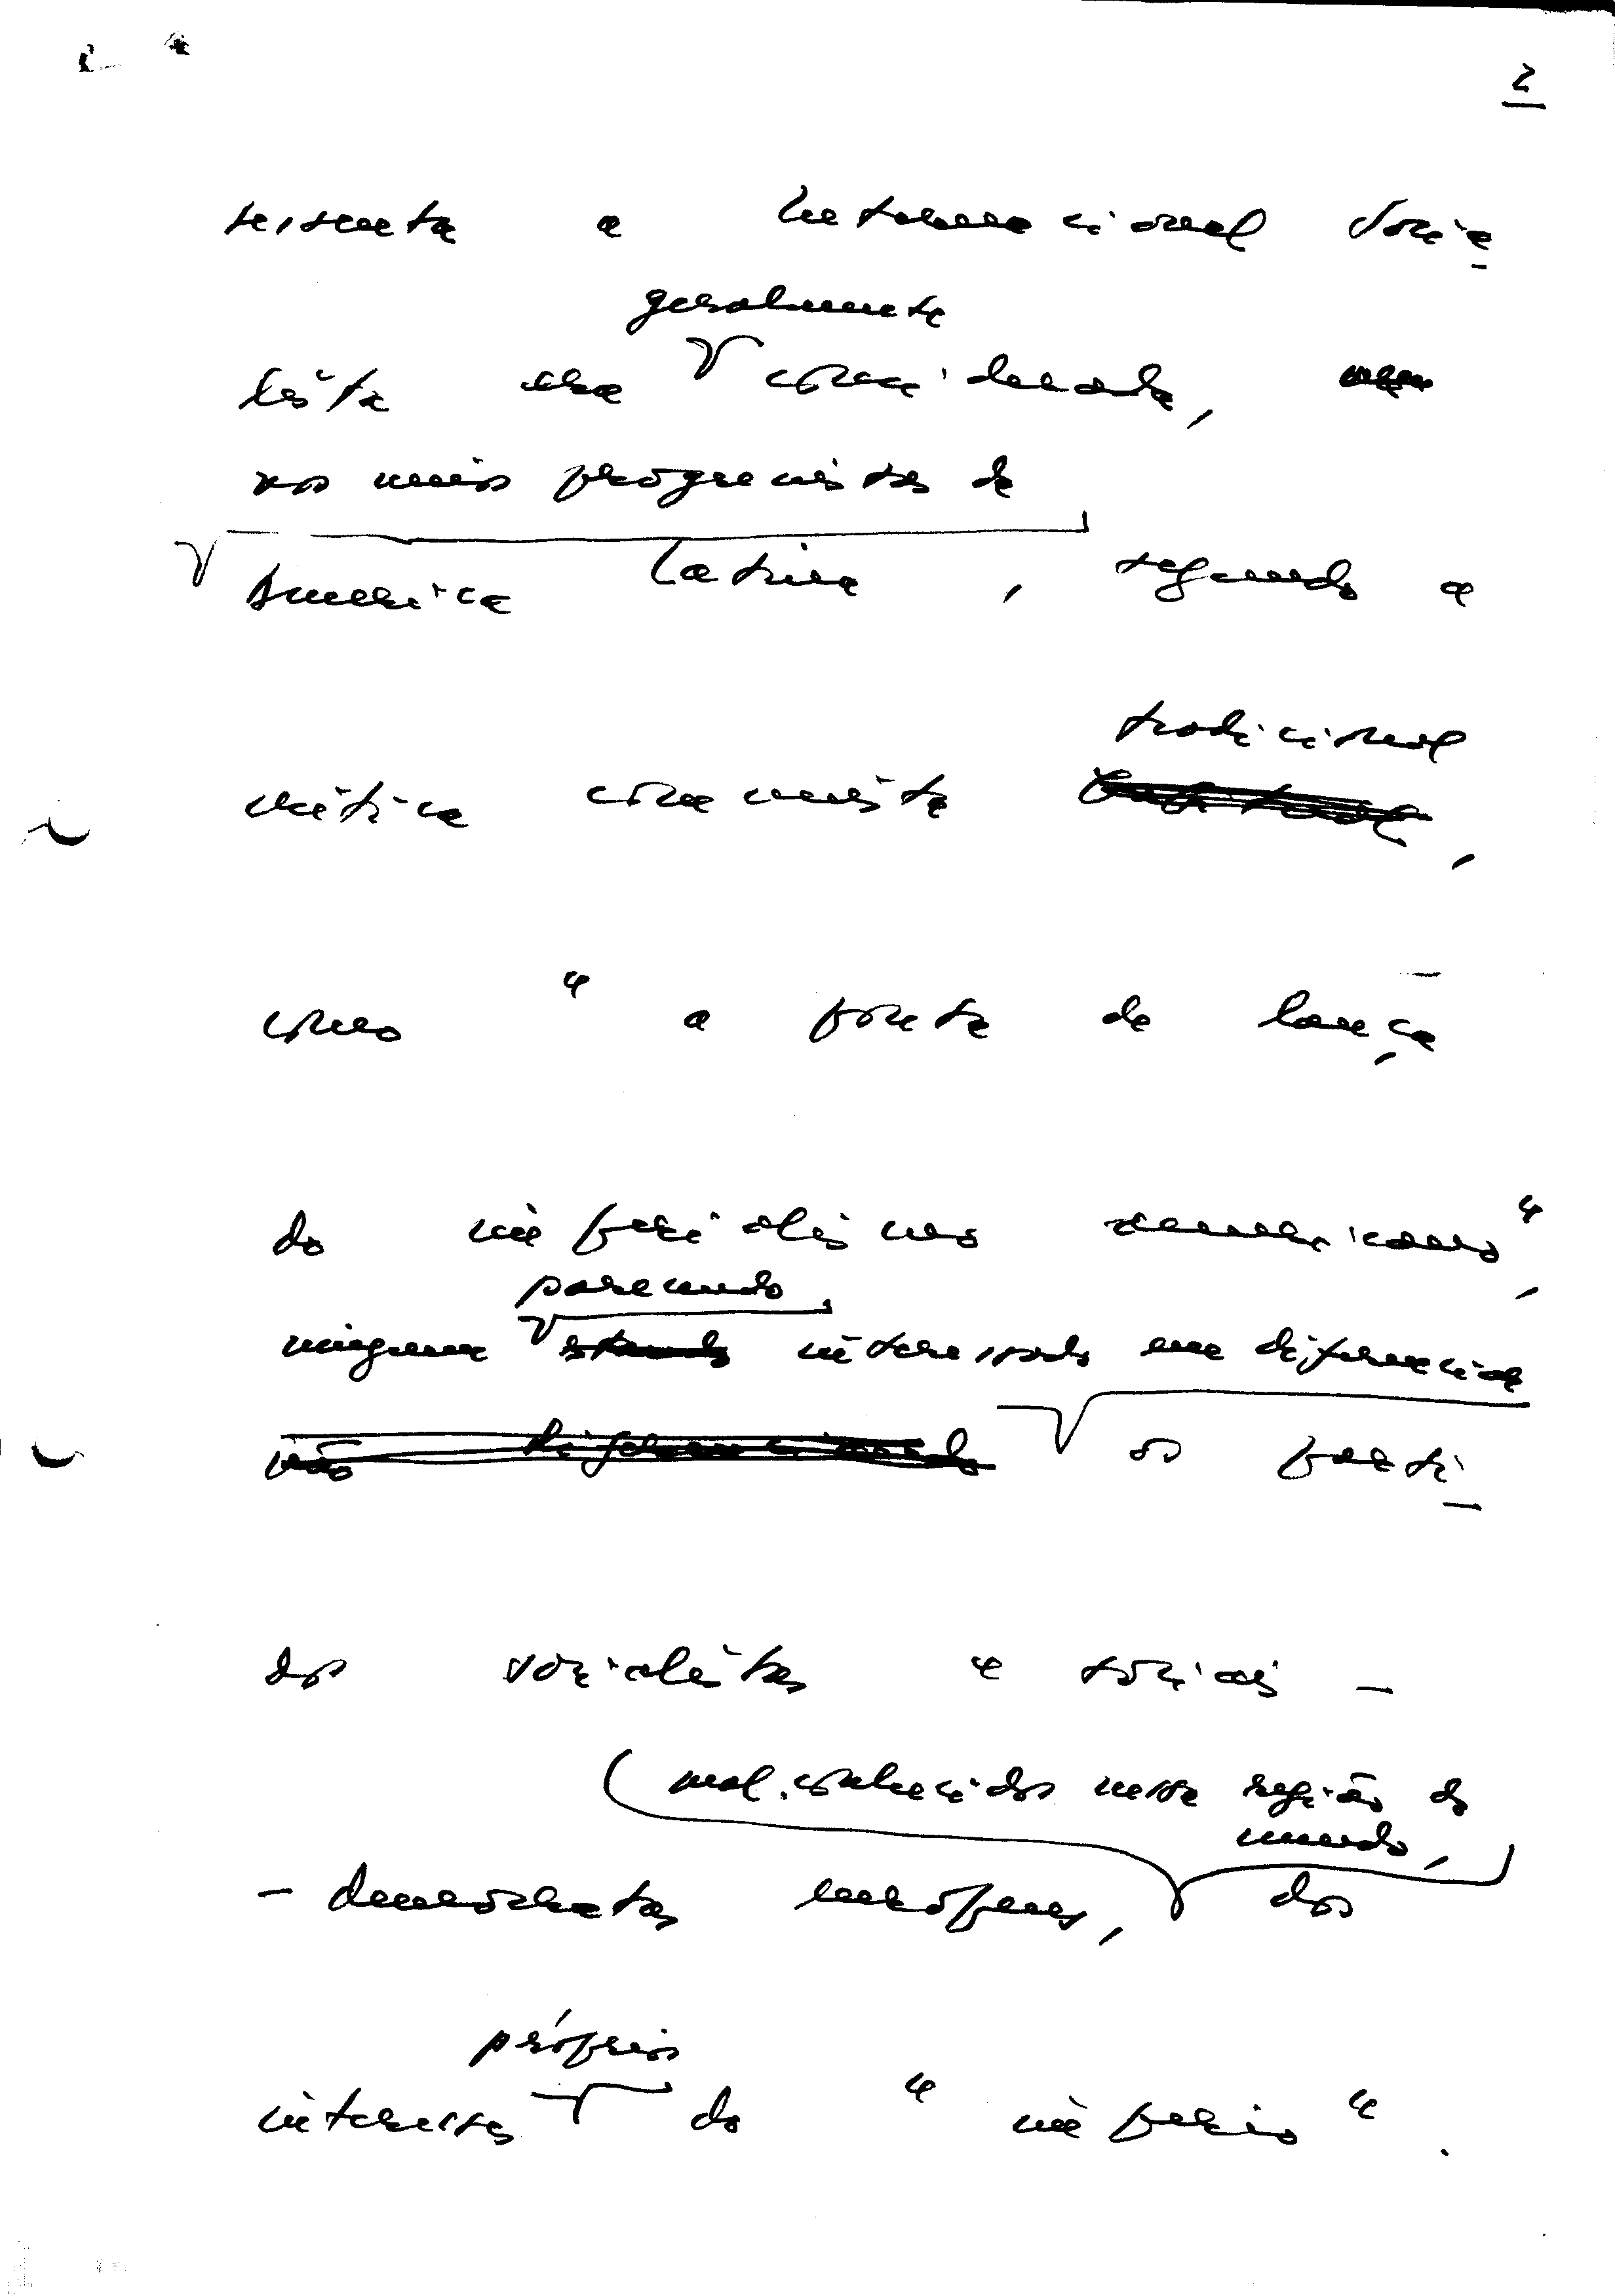 2
sessenta a Internacional Socia-
geralmente
lista era considerada,
nos meios progressistas da
América Latina, segundo a
tradicional
crítica comunista habitual,
como " a ponta de lança
do imperialismo americano",
parecendo
ninguem estando interessado em diferenciar
não diferenciando os parti-
dos socialistas e sociais -
(mal conhecidos nessa região do
mundo,
- democratas europeus, dos
próprios
interesses do " império ".